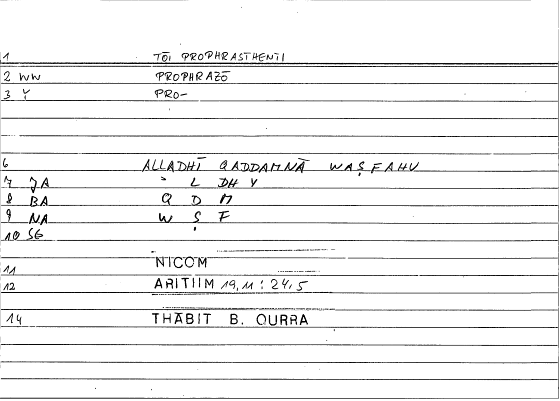 1 TŌI PROPHRASTHENTI
2 WW PROPHRAZŌ
3 Y PRO-
6 ALLADHĪ QADDAMNĀ WAṢFAHU
7 JA ʾ L DH Y
8 BA Q D M
9 NA W Ṣ F
10 SG
11 NICOM
12 ARITIIM 19,11 : 24,5
14 THĀBIT B. QURRA